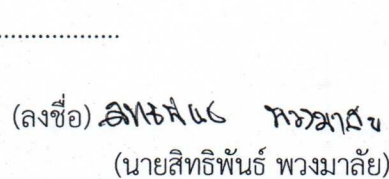 ....................
(ลงชื่อ) สิทธิพันธ์ พวงมาลัย
(นายสิทธิพันธ์ พวงมาลัย)